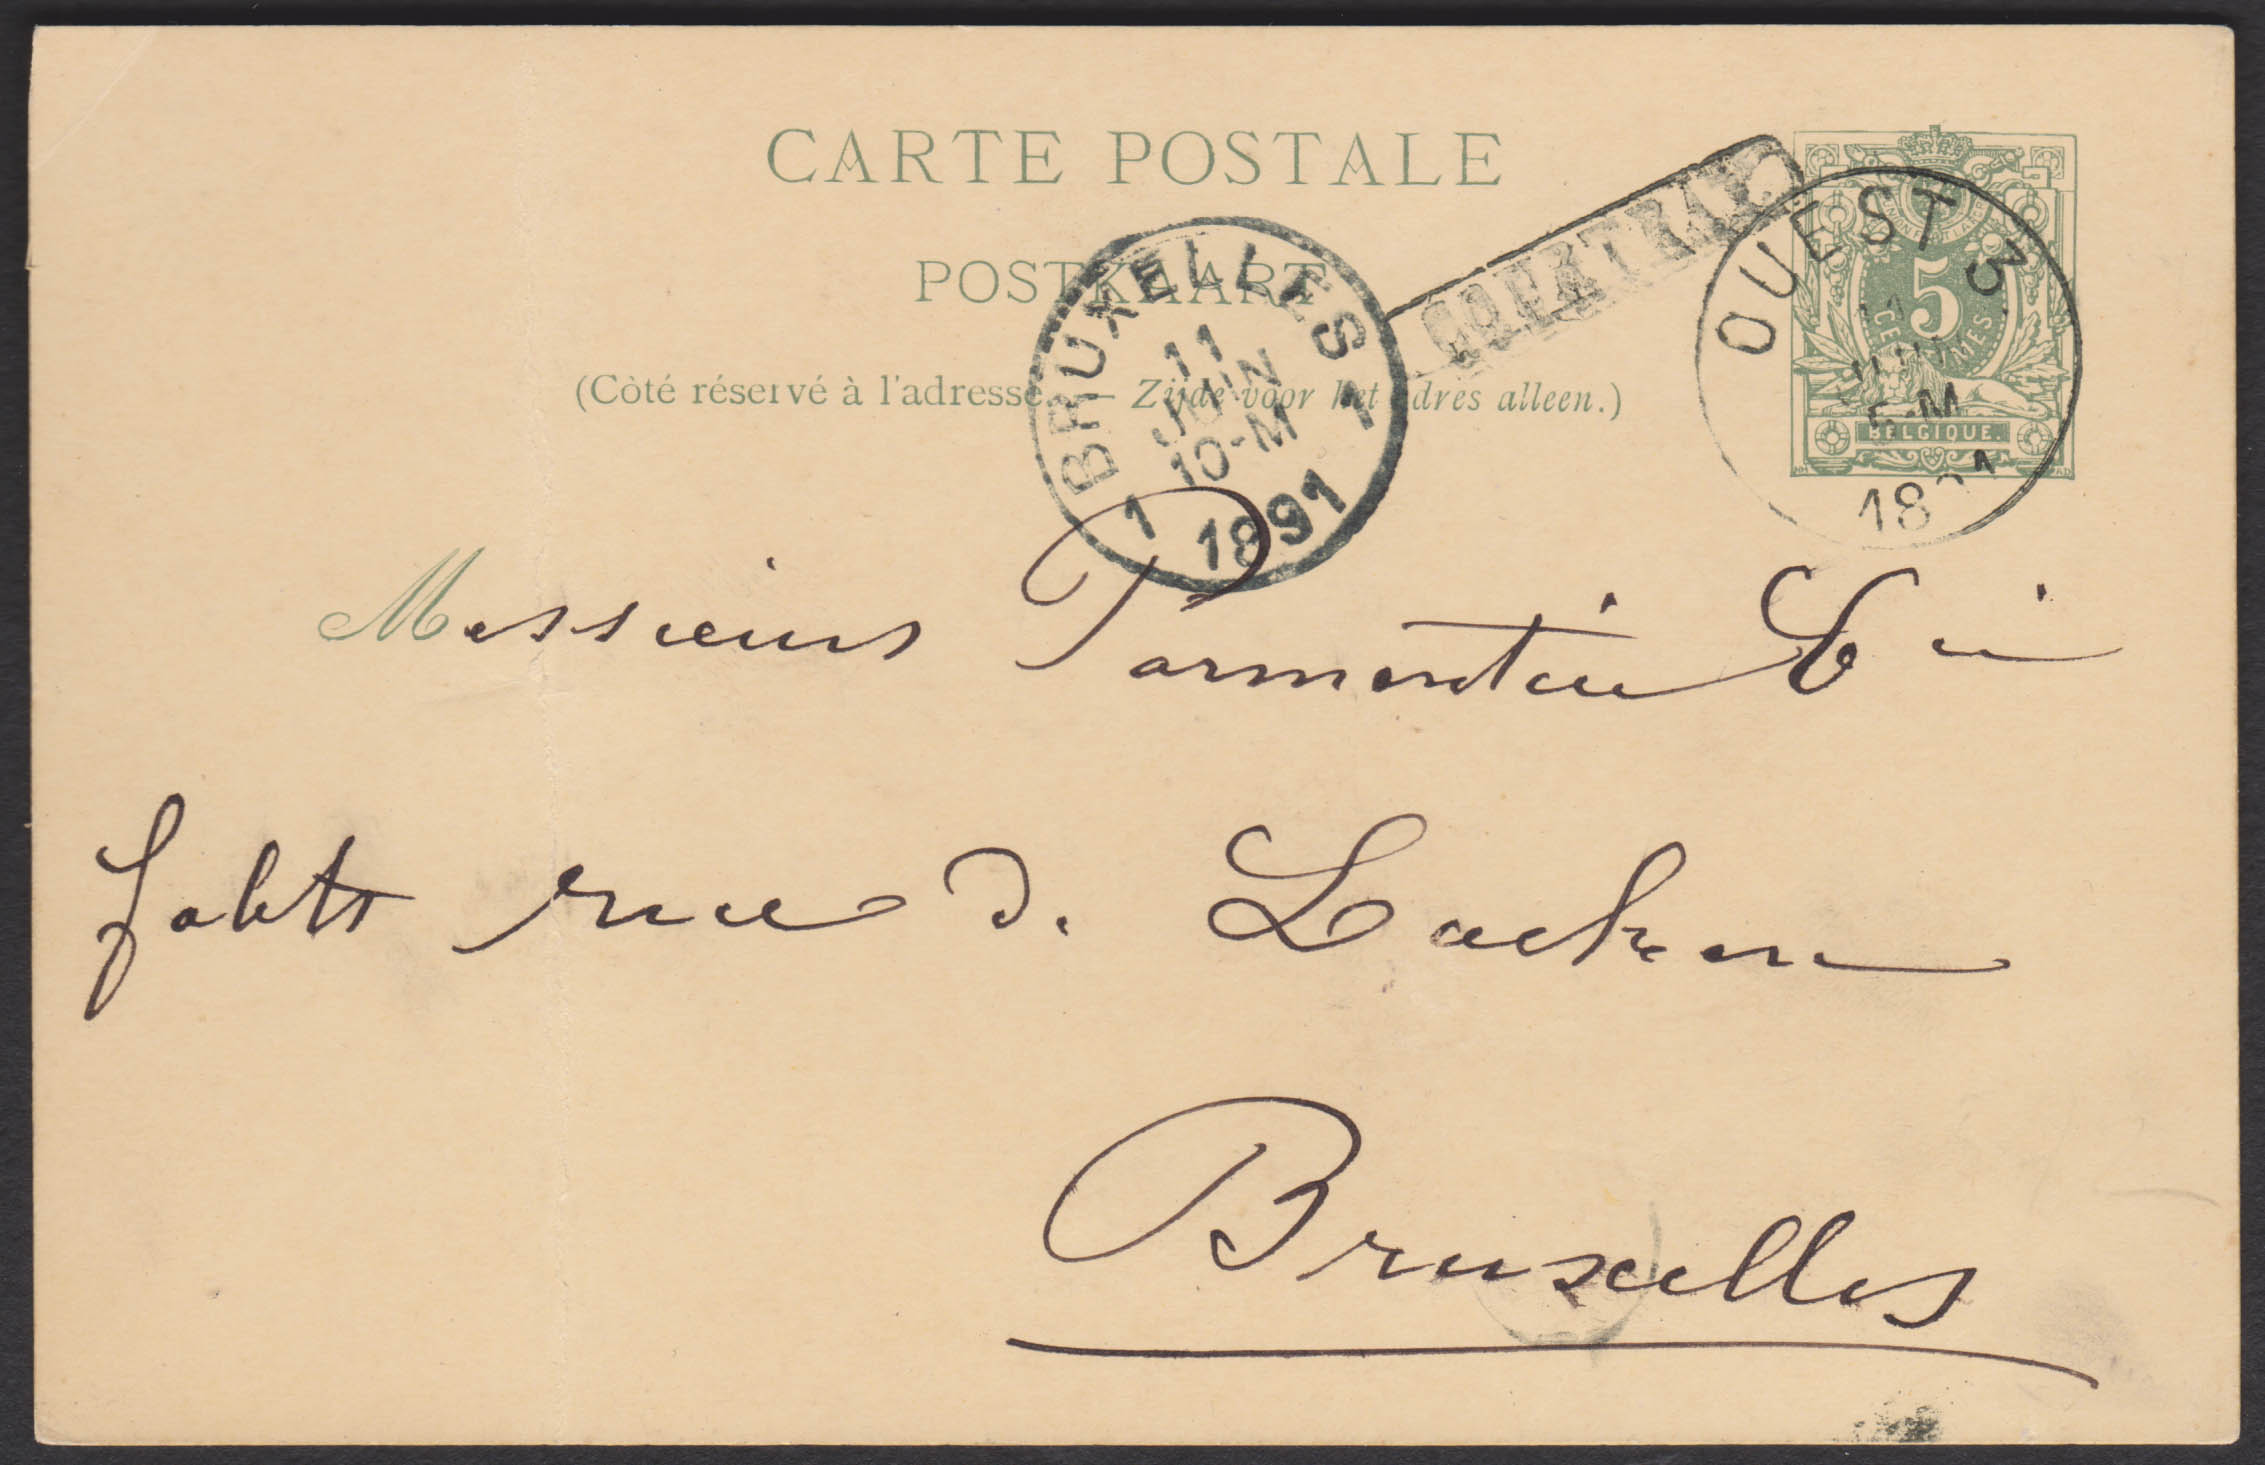 CARTE POSTALE
POSTKAART
(Côté réservé à l'adresse. — Zijde voor het adres alleen.)
BRUXELLES
11
JUIN
10-M
1 1891 1
COURTRAI
OUEST 3
11
JUIN
5-M
18
5
CENTIMES
BELGIQUE.
Messieurs Parmentier
fabts rue d. Laeken
Bruxelles